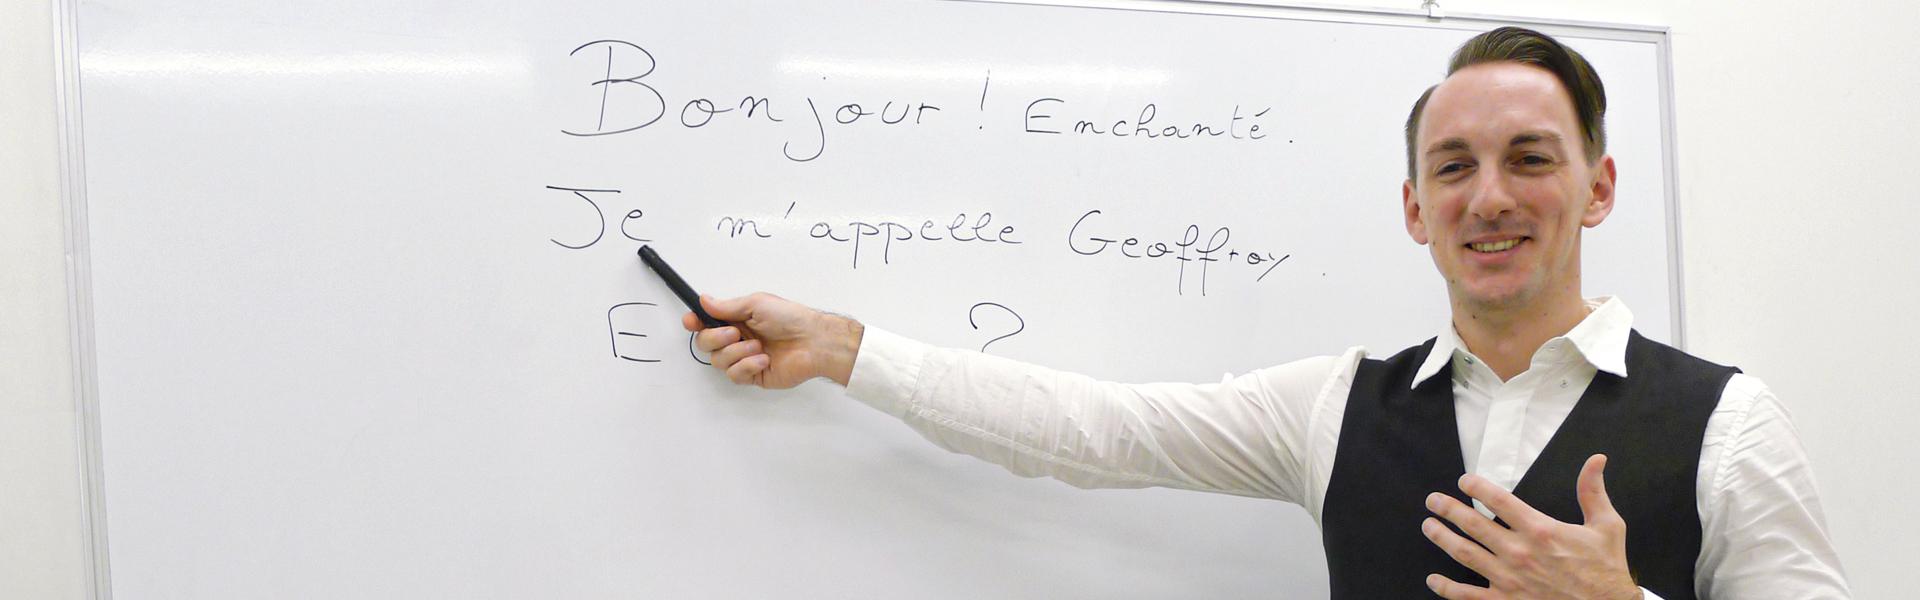 Bonjour ! Enchanté.
Je m'appelle Geoffroy.
?